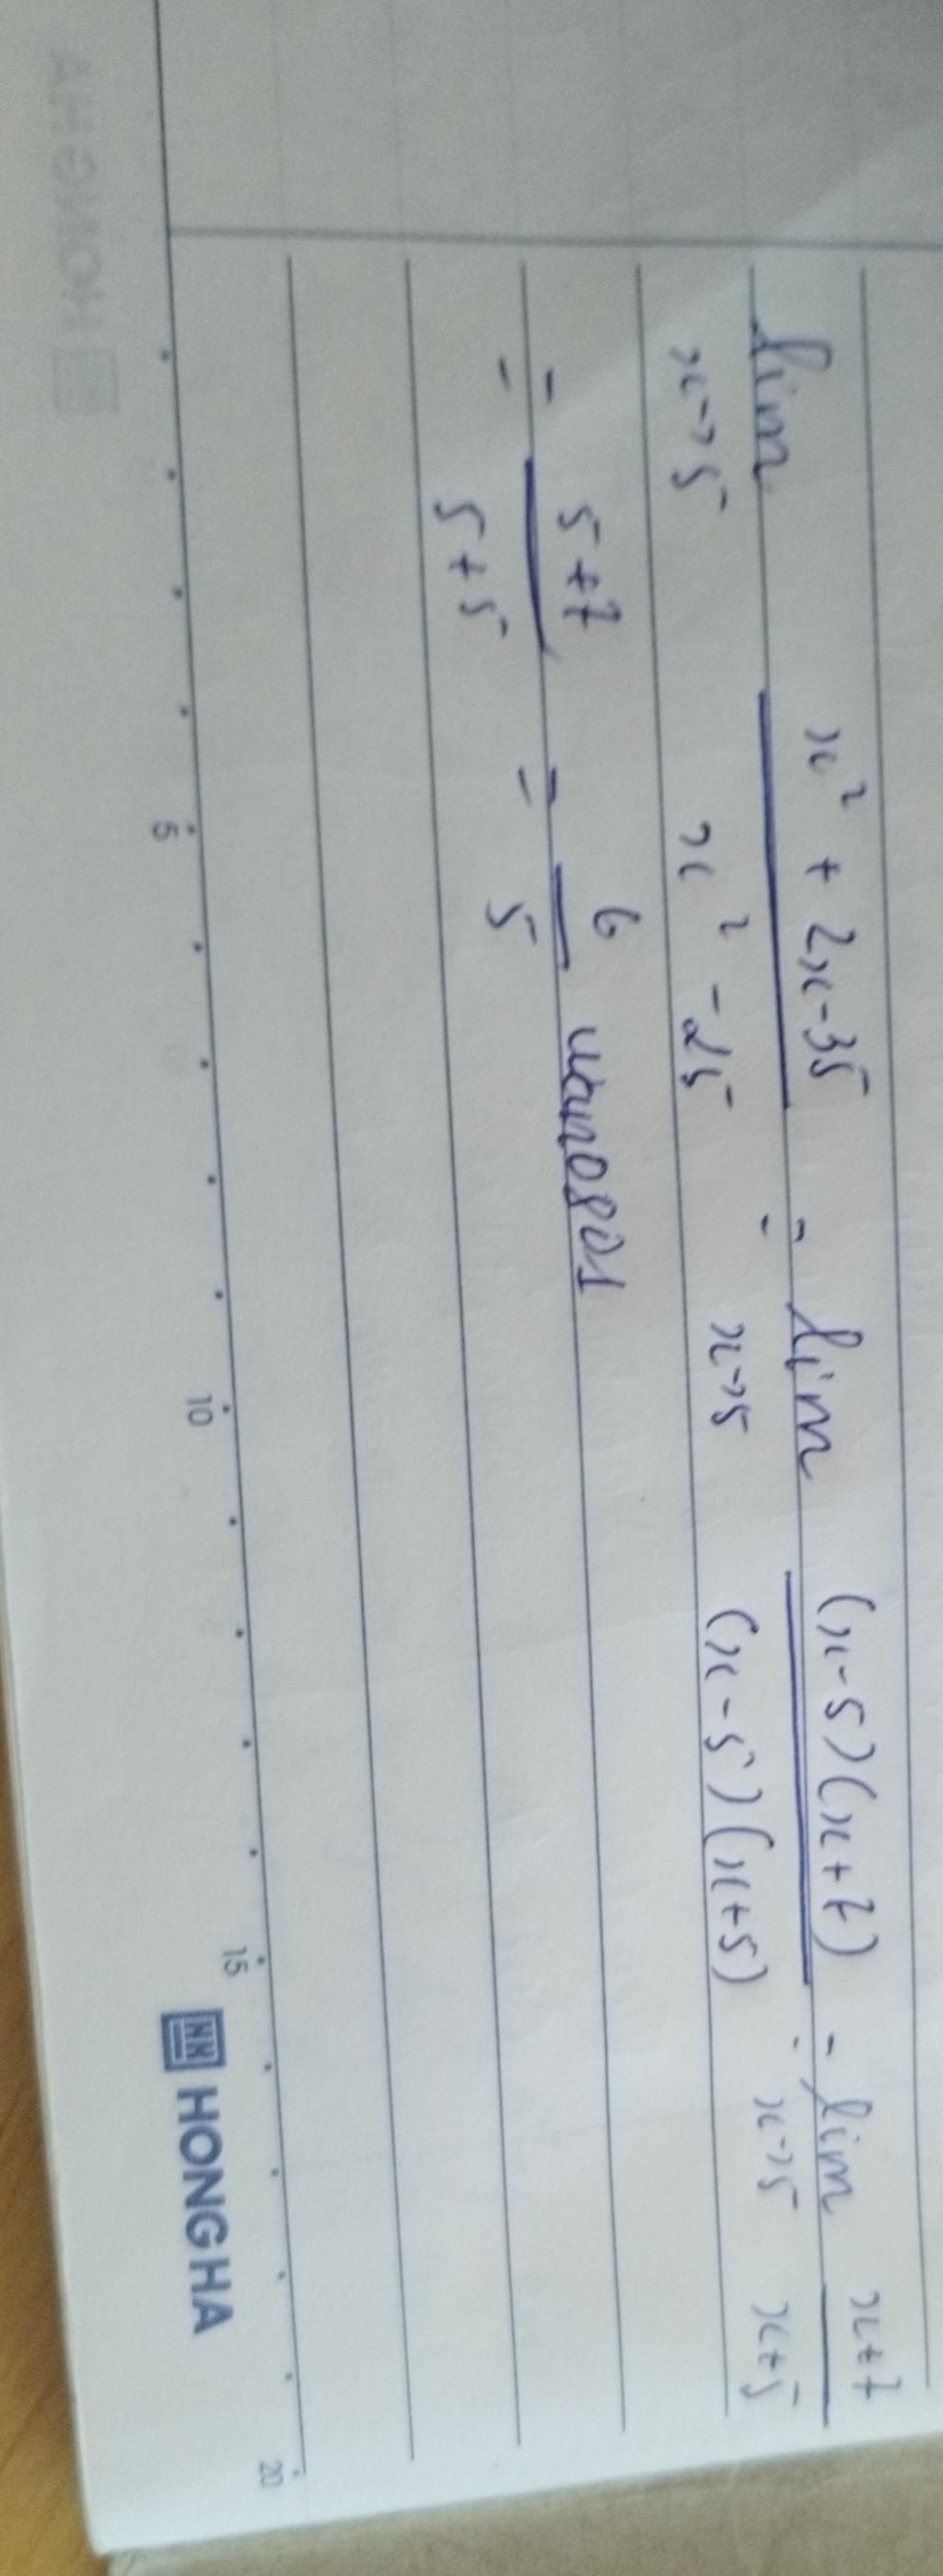 lim x→5 (x² + 2x - 35)/(x² - 25) = lim x→5 ((x-5)(x+7))/((x-5)(x+5)) = lim x→5 (x+7)/(x+5)
= (5+7)/(5+5) = 6/5
5 10 15 20
HONGHA